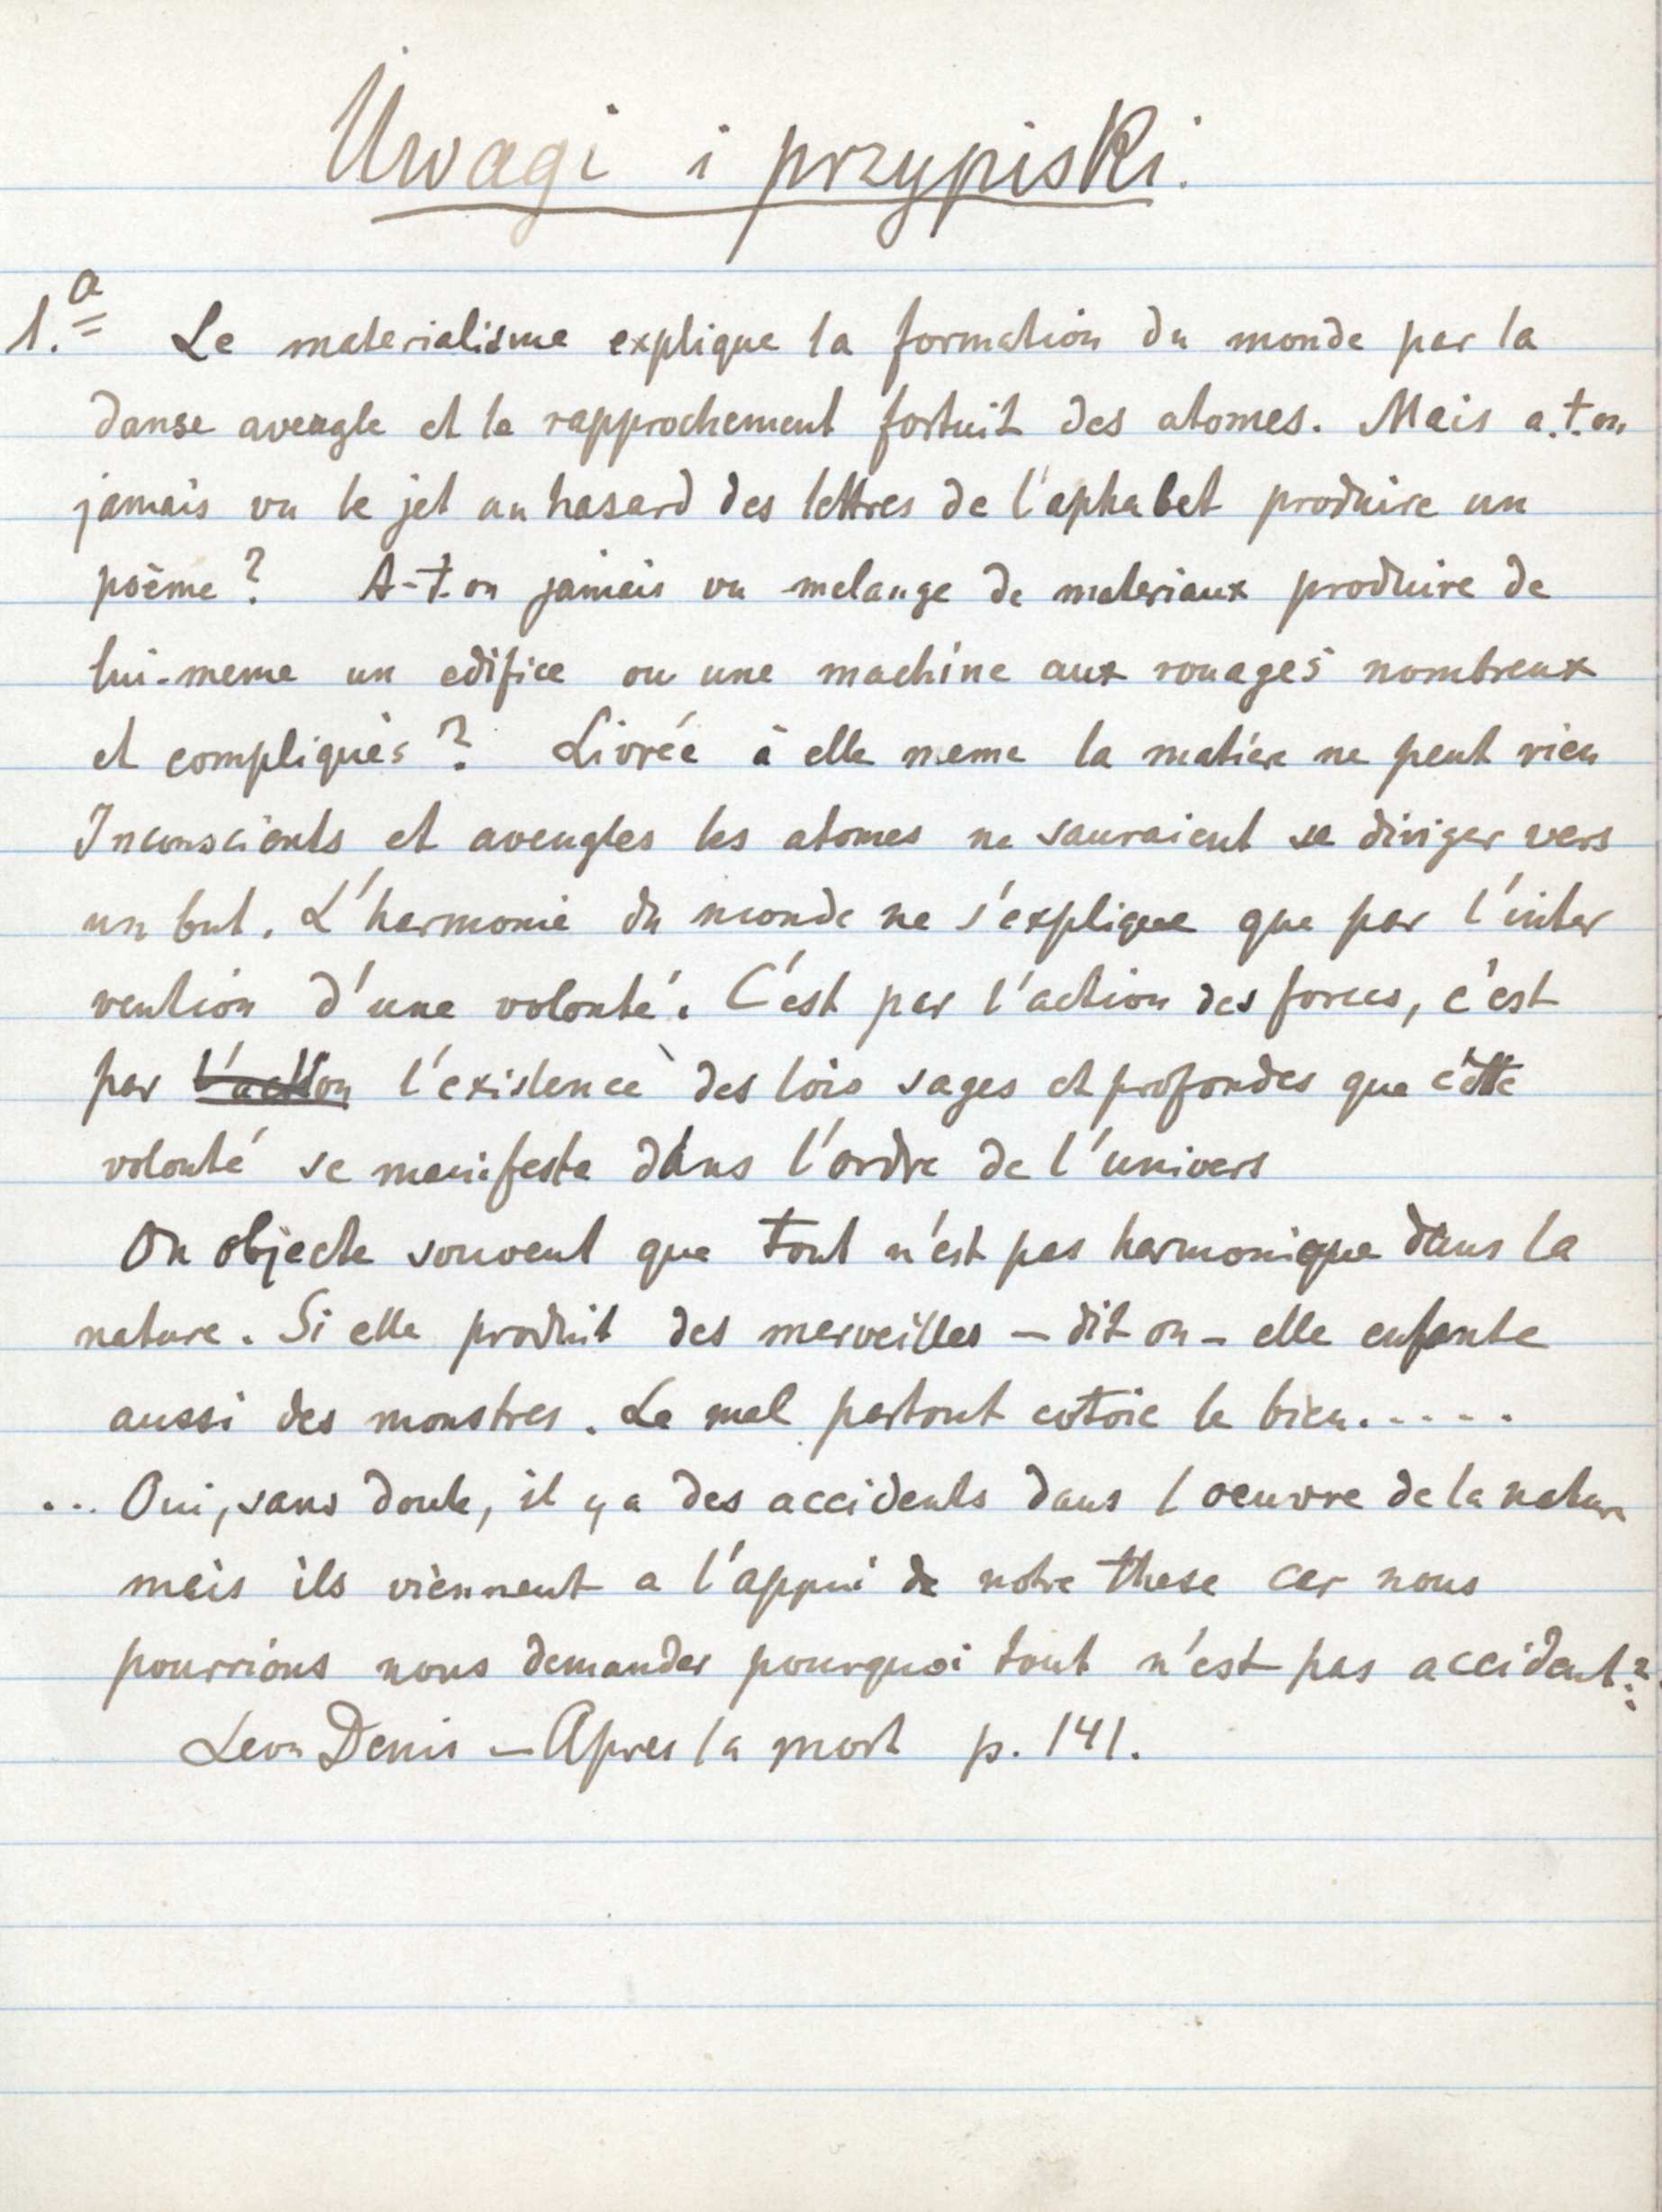 Uwagi i przypiski.
1.a Le materialisme explique la formation du monde par la
danse aveugle et le rapprochement fortuit des atomes. Mais a.t.on
jamais vu le jet au hasard des lettres de l'aphabet produire un
poème? A-t-on jamais vu melange de materiaux produire de
lui-meme un edifice ou une machine aux rouages nombreux
et compliqués? Livrée à elle meme la matière ne peut rien
Inconscients et aveugles les atomes ne sauraient se diriger vers
un but. L'harmonie du monde ne s'explique que par l'inter
vention d'une volonté. C'est par l'action des forces, c'est
par l'action l'existence des lois sages et profondes que cette
volonté se manifeste dans l'ordre de l'univers
On objecte souvent que tout n'est pas harmonique dans la
nature. Si elle produit des merveilles – dit on – elle enfante
aussi des monstres. Le mal partout cotoie le bien.....
... Oui, sans doute, il y a des accidents dans l oeuvre de la nature
mais ils viennent a l'appui de notre these car nous
pourrions nous demander pourquoi tout n'est pas accident?
Leon Denis – Apres la mort p. 141.